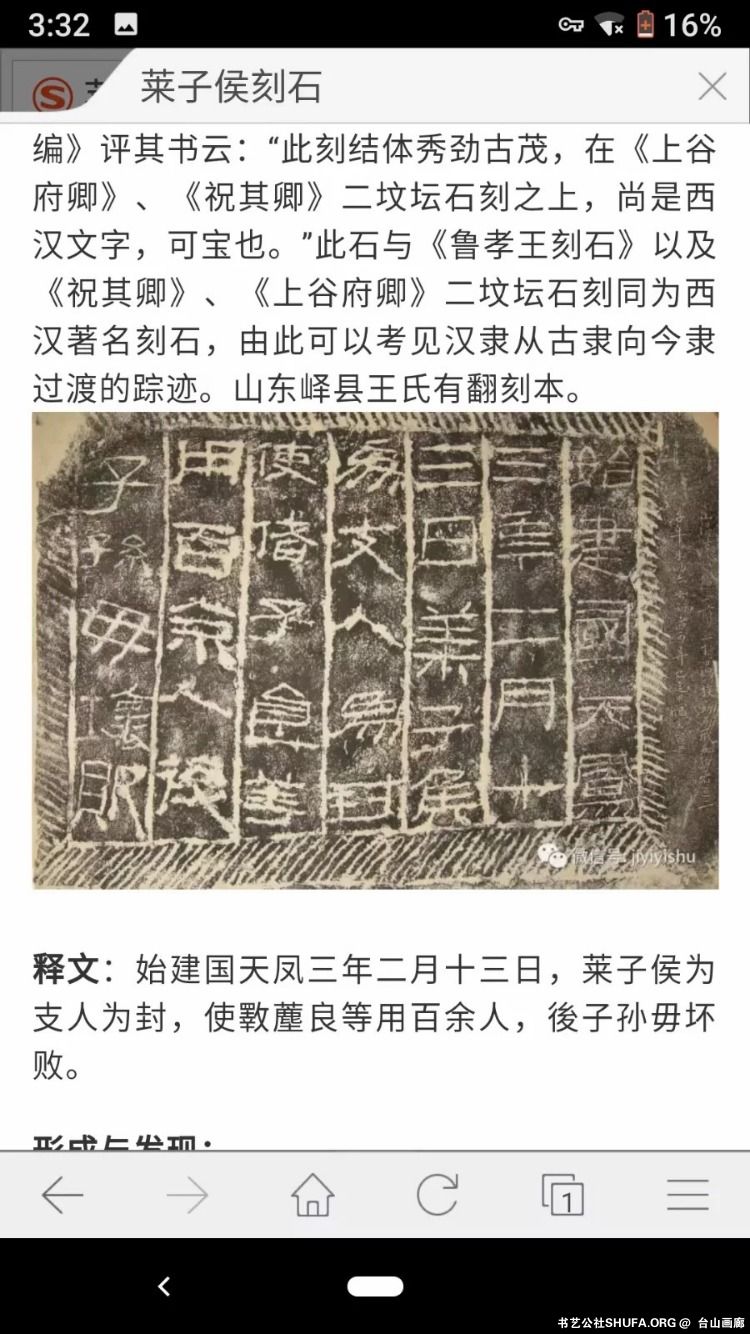 3:32
16%
莱子侯刻石
编》评其书云：“此刻结体秀劲古茂，在《上谷
府卿》、《祝其卿》二坟坛石刻之上，尚是西
汉文字，可宝也。”此石与《鲁孝王刻石》以及
《祝其卿》、《上谷府卿》二坟坛石刻同为西
汉著名刻石，由此可以考见汉隶从古隶向今隶
过渡的踪迹。山东峄县王氏有翻刻本。
始建國天鳳
三年二月十
三日萊子侯
為支人為封
使偖子食等
用百余人後
子子孫毋壞敗
微信号: jiyiyishu
释文：始建国天凤三年二月十三日，莱子侯为
支人为封，使斁麾良等用百余人，後子孙毋坏
败。
形成与发现：
1
书艺公社SHUFA.ORG @ 台山画廊